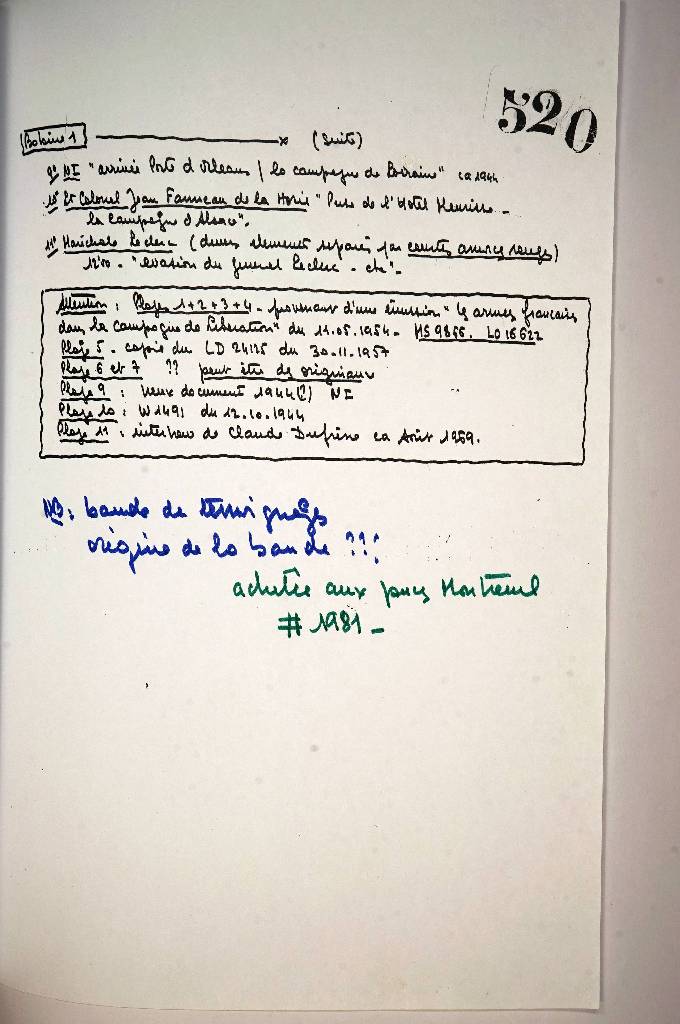 520
Bobine 1 (suite)
9° NI "arrivée Porte d'Orléans / la campagne de Lorraine" ca 1944
10° Lt Colonel Jean Fanneau de la Horie "Prise de l'Hotel Meurisse -
la campagne d'Alsace".
11° Maréchale Leclerc (divers elements séparés par courtes amorces rouges)
12'00 - "evasion du general Leclerc - etc"-
Attention : Plages 1+2+3+4 - provenant d'une émission "les armes françaises
dans la campagne de Liberation" du 11.05.1954 - HS 9866. LO 16622
Plage 5 - copie du LD 24125 du 30.11.1957
Plage 6 et 7 ?? peut être des originaux
Plage 9 : vieux document 1944(?) NI
Plage 10 : W1491 du 12.10.1944
Plage 11 : interview de Claude Dufrêne ca Août 1969.
NB : bande de témoignages
origine de la bande ???
achetée aux puces Montreuil
# 1981 -